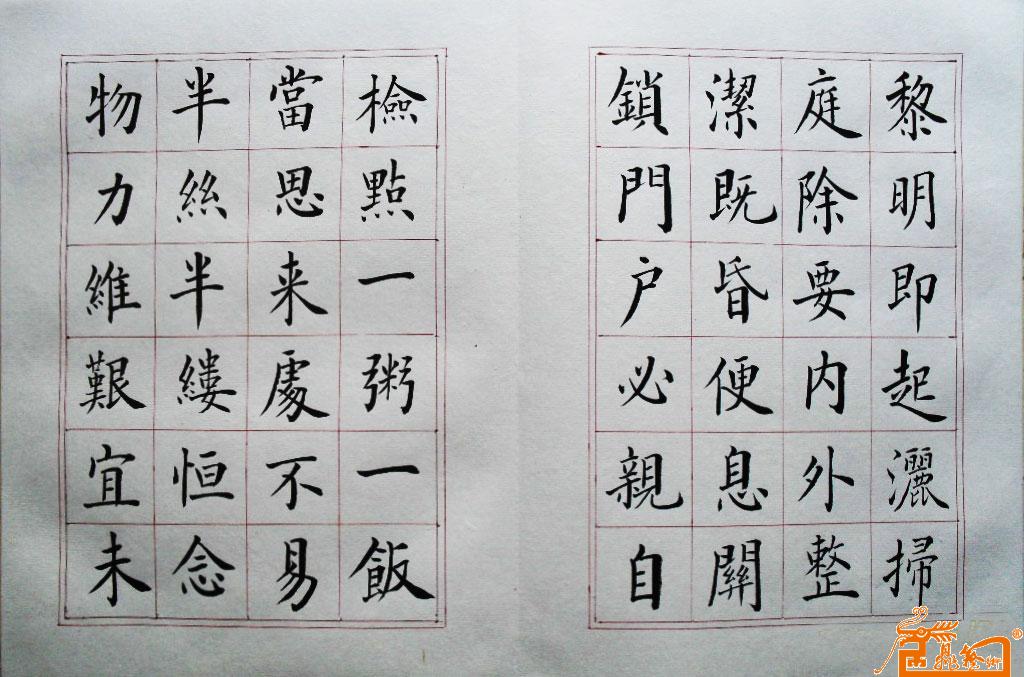 黎明即起灑掃
庭除要內外整
潔既昏便息關
鎖門户必親自
檢點一粥一飯
當思来處不易
半絲半縷恒念
物力維艱宜未